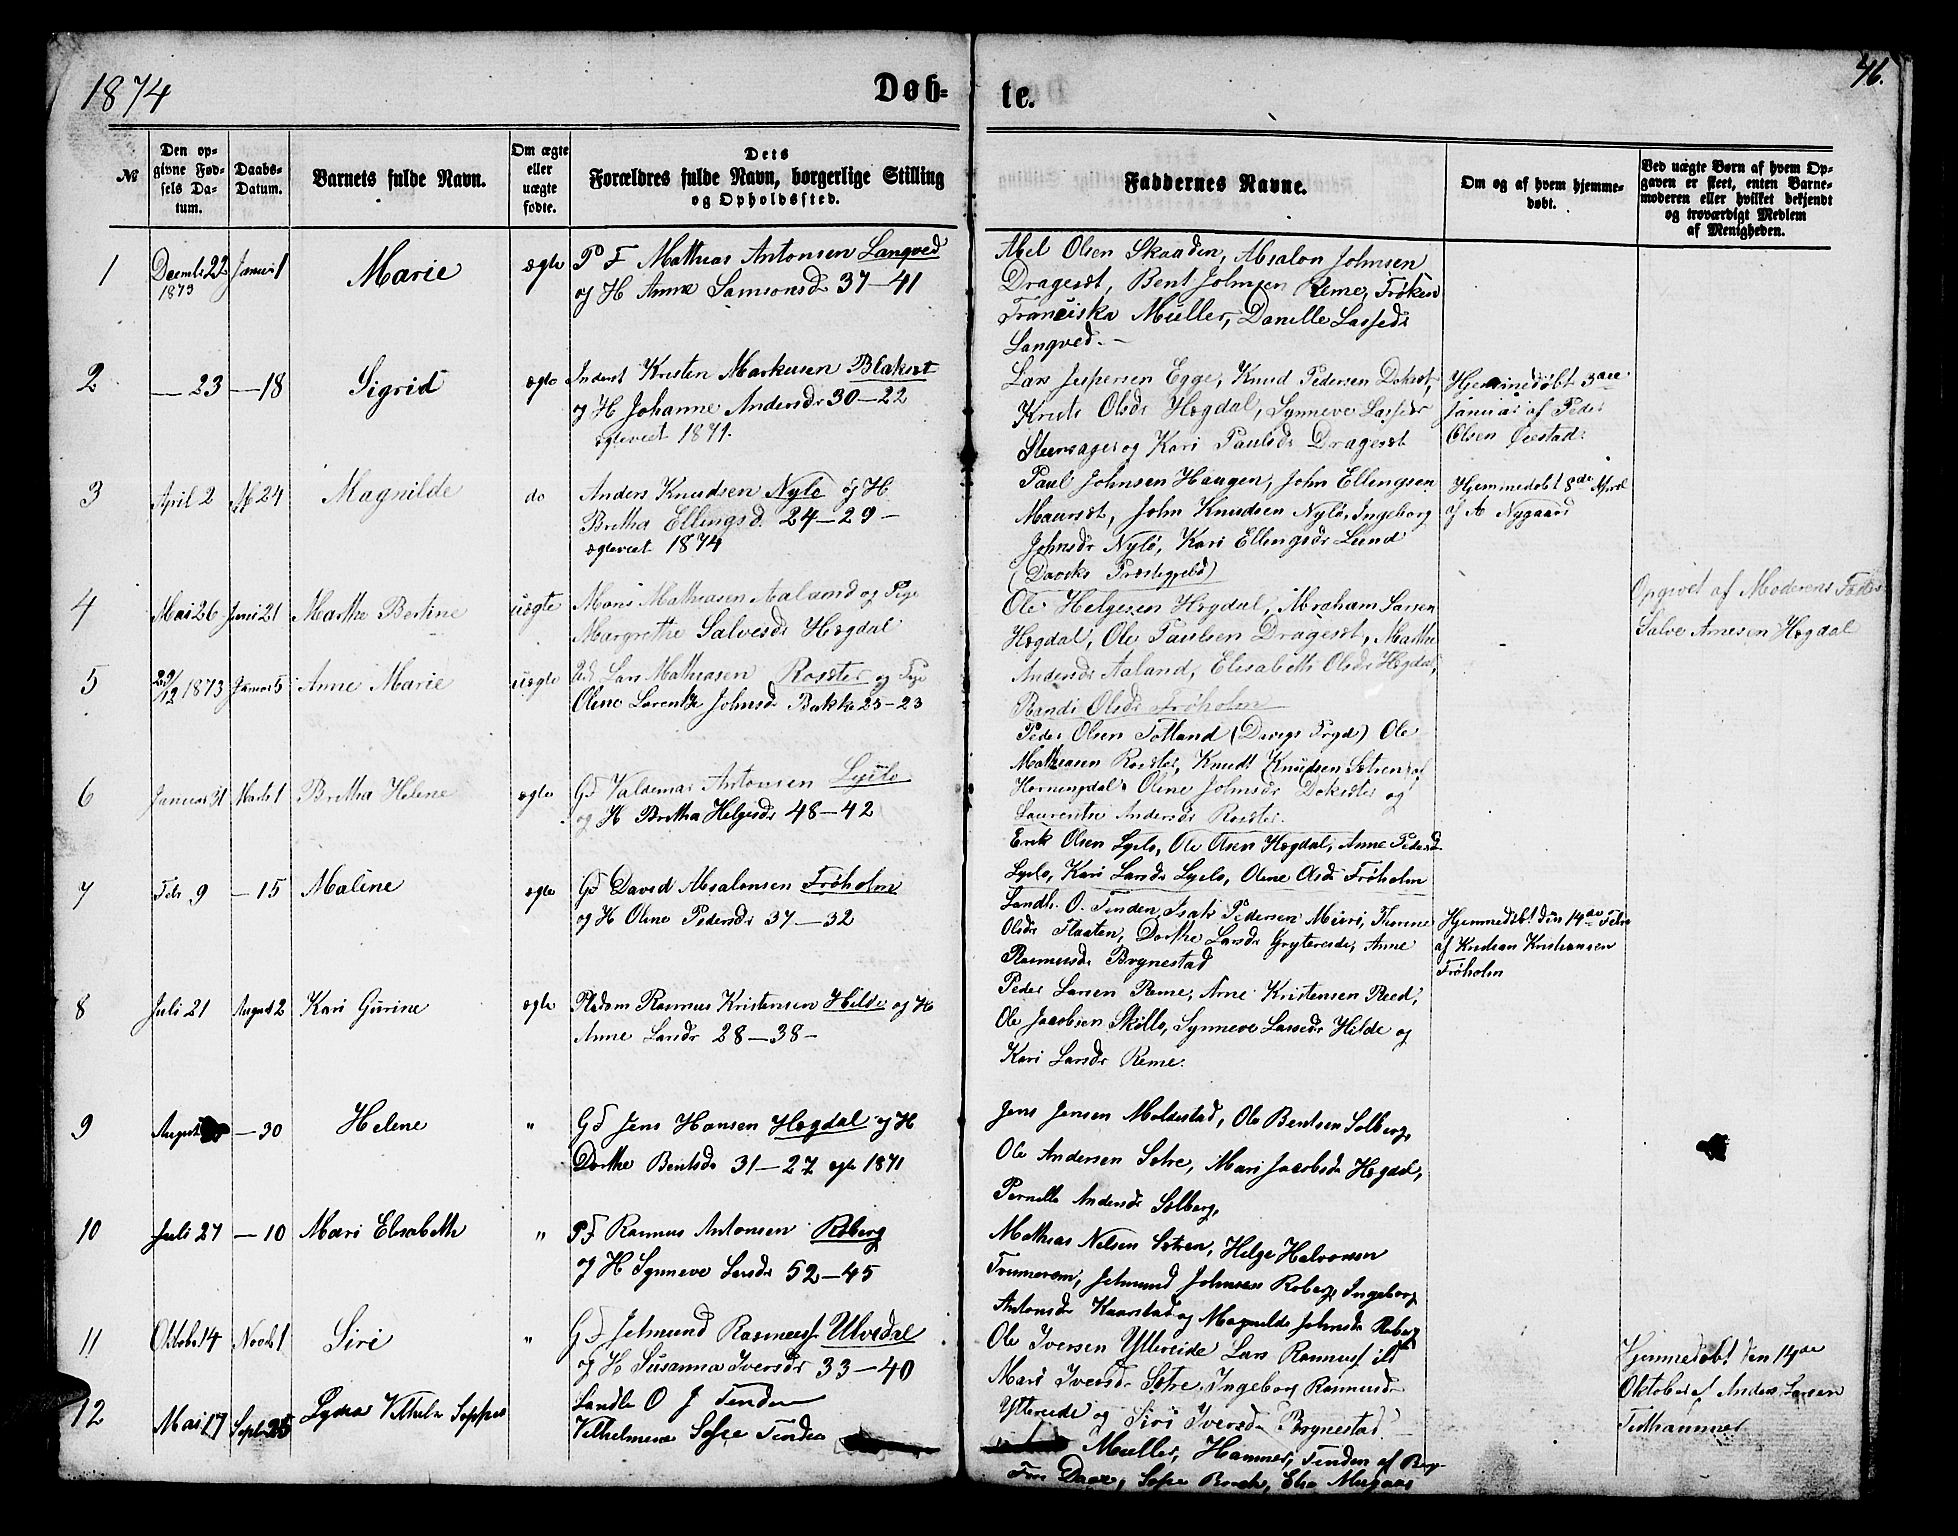 1874
Døb-
te.
46.
№
Den op-
givne Fød-
sels Da-
tum.
Daabs-
Datum.
Barnets fulde Navn.
Om ægte
eller
uægte
fødte.
Dets
Forældres fulde Navn, borgerlige Stilling
og Opholdssted.
Faddernes Navne.
Om og af hvem hjemme-
døbt.
Ved uægte Børn af hvem Op-
gaven er skeet, enten Barne-
moderen eller hvilket bekjendt
og troværdigt Medlem
af Menigheden.
1
Decmbr 22
1873
Januar 1
Marie
ægte
P F Mathias Antonsen Langved
og H Anne Samsonsd 37–41
Abel Olsen Skaaden, Absalon Johnsen
Dragesæt, Bent Johnsen Reme, Frøken
Franciska Müller, Danelle Lassedr
Langved.–
2
— 23
— 18
Sigrid
ægte
Inderst Kristen Markusen Blaksæt
og H Johanne Andersdr 30–22
ægteviet 1871.
Lars Jespersen Egge, Knud Pedersen Doksæt,
Olsdr Høgdal, Synneve Lassedr
og Kari Paulsdr Dragesæt
Hjemmedøbt 3die
Januar af Peder
Olsen
3
April 2
Mai 24
Magnilde
do
Anders Knudsen Nylø og H
Bretha Ellingsd. 24–29–
ægteviet 1874
Paul Johnsen Haugen, John Ellingsen
Maursæt, John Knudsen Nylø, Ingeborg
Johnsdr Nylø, Kari Ellingsdr Lund
(Daviks Præstegjeld)
Hjemmedøbt 8de April
af A Nygaard
4
Mai 26
Juni 21
Marthe Bertine
uægte
Mons Mathiasen Aaland og Pige
Margrethe Salvesdr Høgdal
Ole Helgesen Høgdal, Abraham Larsen
Høgdal, Ole Paulsen Dragesæt, Marthe
Andersdr Aaland, Elisabeth Olsdr Høgdal,
Randi Olsdr Frøholm
Opgivet af Moderens Fader
Salve Arnesen Høgdal
5
29/12 1873
Januar 5
Anne Marie
uægte
Lars Mathiasen Roset og Pige
Oline Larentze Johnsd Bakke 25–23
Peder Olsen Totland (Davigs Prgd) Ole
Mathiasen Roset, Knudt Knudsen Sætren af
Hornengdal, Oline Johnsdr Doksæt og
Laurentse Andersdr Roset.
6
Januar 31
Marts 1
Bretha Helene
ægte
Gd Valdemar Antonsen Lyslo
og H Bretha Helgesdr 48–42
Erik Olsen Lyslo, Ole Olsen Høgdal, Anne Pedersd
Lyslo, Kari Larsdr Lyslo, Oline Olsdr Frøholm
7
Febr 9
— 15
Maline
ægte
Gd David Absalonsen Frøholm
og H Oline Pedersdr 37–32
Landh. O. Tenden, Isak Pedersen Muri, Thorine
Olsdr Flaaten, Dorthe Larsdr Gryterede, Anne
Rasmusdr Brynestad
Hjemmedøbt den 14de Febr
af Kristian Kristiansen
Frøholm
8
Juli 21
August 2
Kari Gurine
ægte
Pldsm Rasmus Kristensen Hilde og H
Anne Larsdr 28–38–
Peder Larsen Reme, Arne Kristensen Reed,
Ole Jacobsen Skølle, Synneve Lassedr Hilde og
Kari Larsdr Reme.
9
August
— 30
Helene
"
Gd Jens Hansen Høgdal og H
Dorthe Bentsdr 31–27 ægt 1871
Jens Jensen Moldestad, Ole Bentsen Solberg,
Ole Andersen Sætre, Mari Jacobsdr Høgdal,
Pernelle Andersdr Solberg,
10
Juli 27
— 10
Mari Elisabeth
"
P F Rasmus Antonsen Roberg
og H Synneve Larsdr 52–45
Mathias Nilsen Sætren, Helge Halvorsen
Jetmund Johnsen Roberg, Ingeborg
Antonsdr Kaarstad og Magnilde Johnsdr Roberg
11
Oktobr 14
Novbr 1
Siri
"
Gd Jetmund Rasmuss Ulvedal
og H Susanna Iversdr 33–40
Ole Iversen Yttereide Lars Rasmuss ibd
Mari Iversdr Sætre, Ingeborg Rasmusdr
Yttereide og Siri Iversdr Brynestad
Hjemmedøbt den 14de
Oktober af Anders Larsen
12
Mai 17
Septr 25
Vilhelm
Landh O J Tenden
Vilhelmine Sofie Tenden
Müller, Hammer, Tenden af
Daae, Sofie